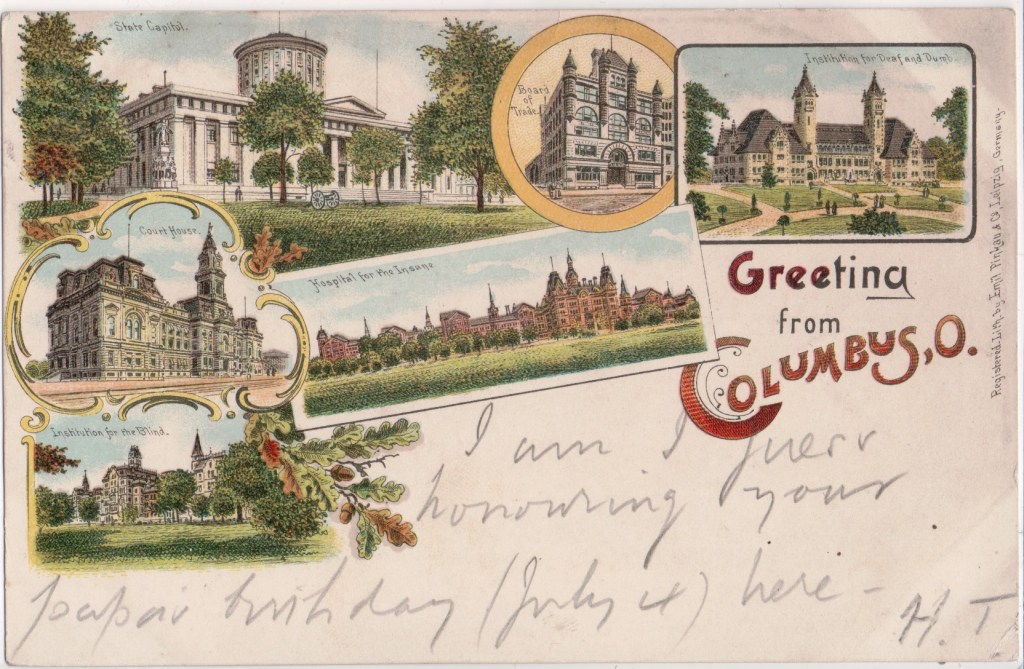 State Capitol.
Board
of
Trade.
Institution for Deaf and Dumb.
Court House.
Hospital for the Insane
Institution for the Blind.
Greeting
from
COLUMBUS, O.
Registered. Lith. by Emil Pinkau & Co. Leipzig, Germany.
I am I guess
honouring your
papa's birthday (July 4) here -
H. T